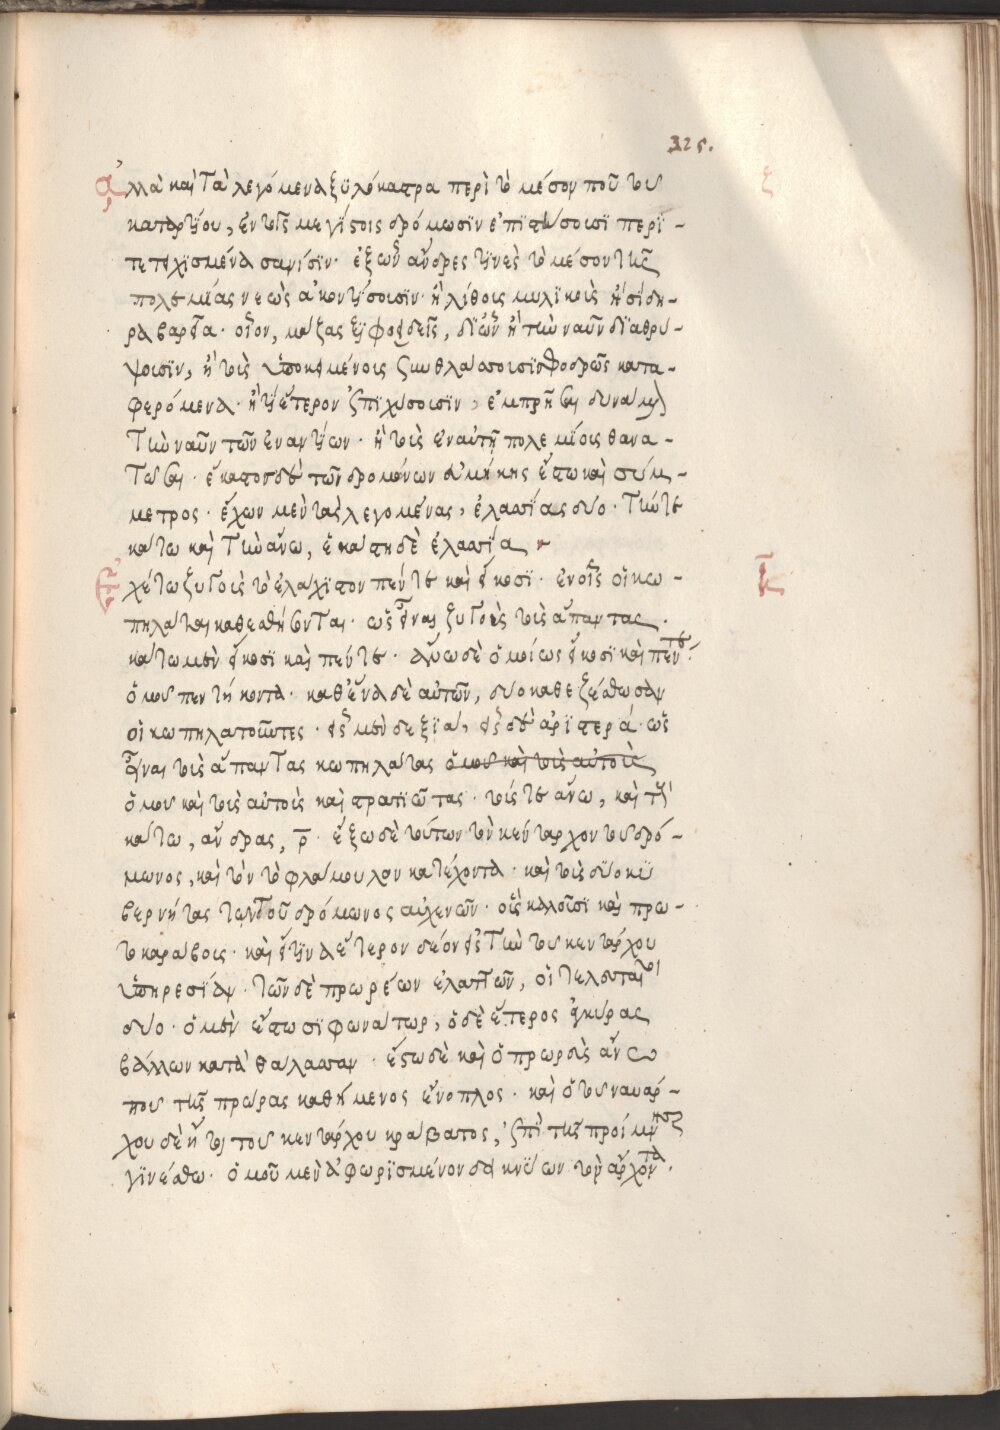 325.
ἀλλὰ καὶ τὰ λεγόμενα ξυλόκαστρα περὶ τὸ μέσον που τοῦ
καταρτίου, ἐν τοῖς μεγίστοις δρόμωσιν ἐπιστήσουσι περι-
τετειχισμένα σανίσιν· ἐξ ὧν ἄνδρες τινὲς τὸ μέσον τῆς
πολεμίας νεὼς ἀκοντίσουσιν· ἢ λίθοις μυλικοῖς ἢ σίδη-
ρα βαρεῖα· οἷον, μάζας ξιφοειδεῖς, δι' ὧν ἢ τὴν ναῦν διαθρύ-
ψουσιν, ἢ τοὺς ὑποκειμένοις συνθλάσουσι σφοδρῶς κατα-
φερόμενα· ἢ τι ἕτερον ἐπιχύσουσιν, ἐμπρῆσαι δυνάμενα
τὴν ναῦν τῶν ἐναντίων· ἢ τοὺς ἐν αὐτῇ πολεμίοις θανα-
τῶσαι· ἕκαστον δὲ τῶν δρομώνων εὐμήκης ἔστω καὶ σύμ-
μετρος· ἔχων μὲν τὰς λεγομένας, ἐλασίας δύο· τήν τε
κάτω καὶ τὴν ἄνω, ἑκάστη δὲ ἐλασία
ξ
κ
Ἐχέτω ζυγοὺς τὸ ἐλάχιστον πέντε καὶ εἴκοσι· ἐν οἷς οἱ κω-
πηλάται καθεσθήσονται· ὡς εἶναι ζυγοὺς τοὺς ἅπαντας.
κάτω μὲν εἴκοσι καὶ πέντε· ἄνω δὲ ὁμοίως εἴκοσι καὶ πέντε·
ὁμοῦ πεντήκοντα· καθ' ἕνα δὲ αὐτῶν, δύο καθεζέσθωσαν
οἱ κωπηλατοῦντες· εἷς μὲν δεξιὰ, εἷς δὲ ἀριστερά· ὡς
εἶναι τοὺς ἅπαντας κωπηλάτας ὁμοῦ καὶ τοὺς αὐτοὺς
ὁμοῦ καὶ τοὺς αὐτοὺς καὶ στρατιώτας· τούς τε ἄνω, καὶ τοὺς
κάτω, ἄνδρας, ρ̅· ἔξω δὲ τούτων τὸν κένταρχον τοῦ δρό-
μωνος, καὶ τὸν τὸ φλάμουλον κατέχοντα· καὶ τοὺς δύο κυ-
βερνήτας τῶν τοῦ δρόμωνος αὐχενῶν· οὓς καλοῦσι καὶ πρω-
τοκαράβους· καὶ εἴ τινα ἕτερον δέον εἰς τὴν τοῦ κεντάρχου
ὑπηρεσίαν· τῶν δὲ πρωρέων ἐλατῶν, οἱ τελευταῖοι
δύο· ὁ μὲν ἔστω σιφωνάτωρ, ὁ δὲ ἕτερος ἀγκύρας
βάλλων κατὰ θάλασσαν· ἔστω δὲ καὶ ὁ πρωρεὺς ἄνω
που τῆς πρώρας καθήμενος ἔνοπλος· καὶ ὁ τοῦ ναυάρ-
χου δὲ ἤτοι τοῦ κεντάρχου κράβατος, ἐπὶ τῆς πρύμνης
γινέσθω· ὁμοῦ μὲν ἀφωρισμένον δεικνύων τὸν ἄρχοντα.